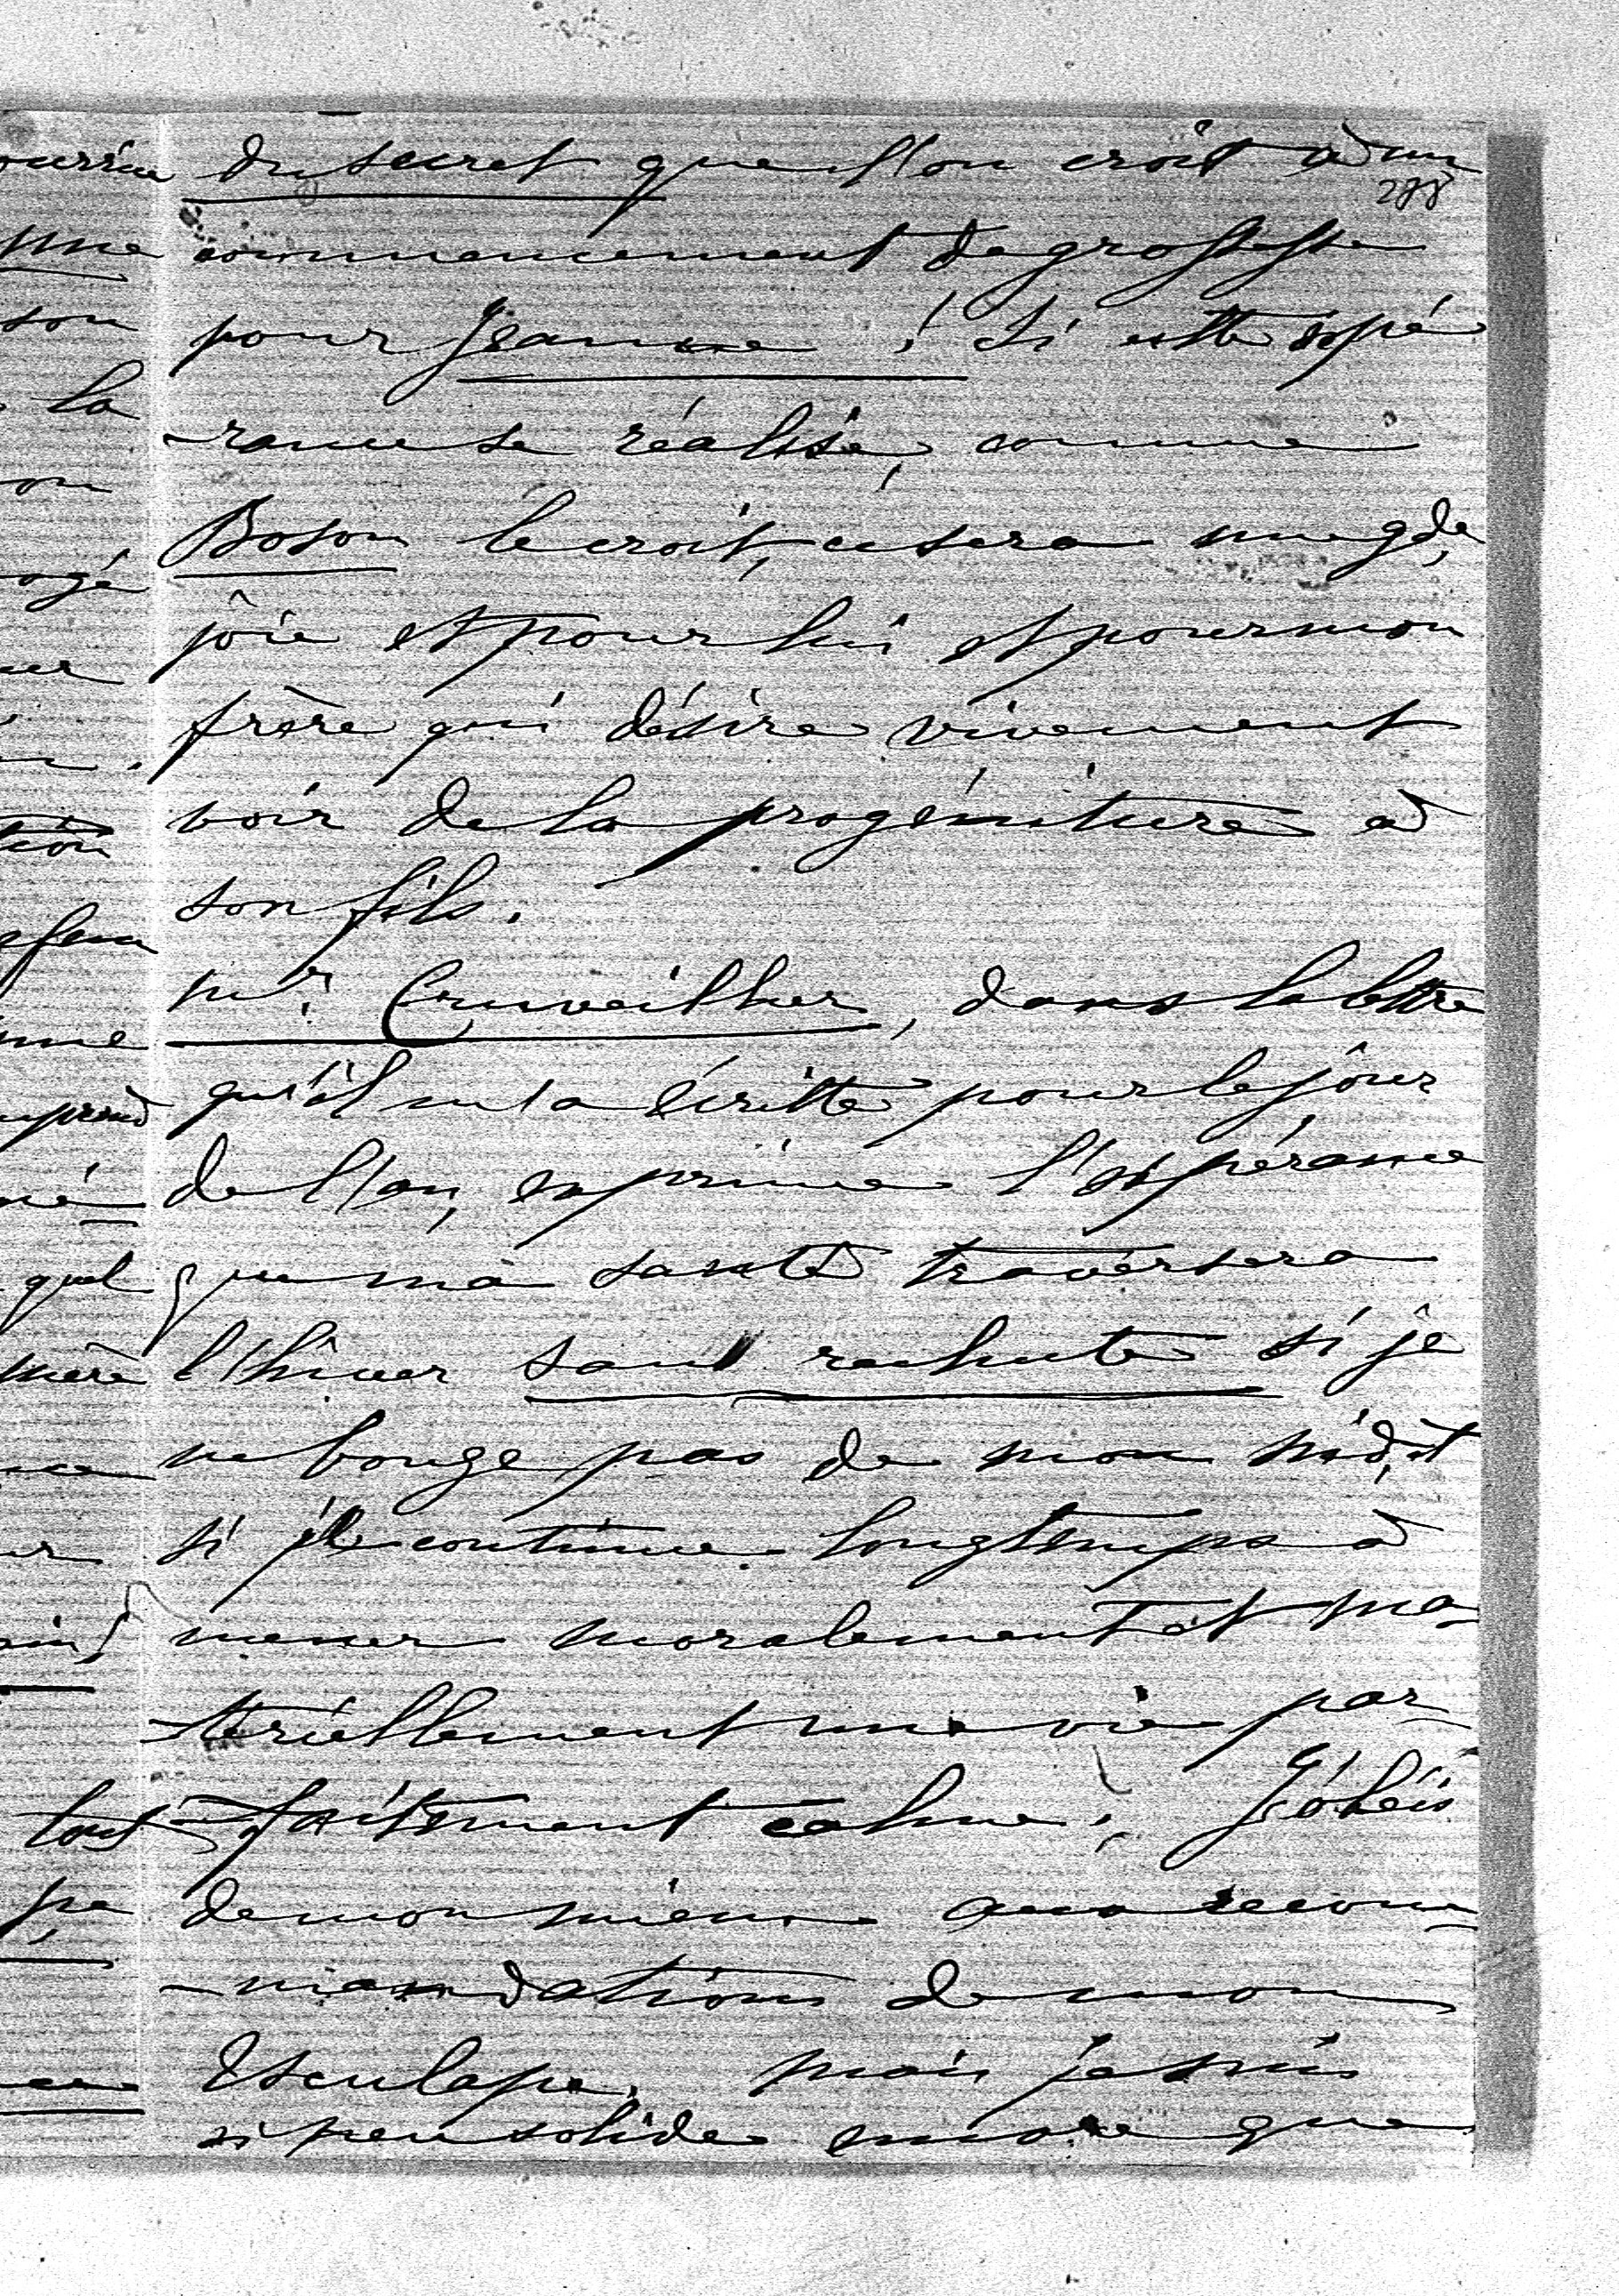 du secret que l'on croit à un
278
commencement de grossesse
pour Jeanne ! Si cette espé
-rance se réalise, comme
Boson le croit, ce sera une gde
joie et pour lui et pour mon
frère qui désire vivement
voir de la progéniture à
son fils.
Mr. Cruveilher, dans la lettre
qu'il m'a écritte pour le jour
de l'an, exprime l'espérance
que ma santé traversera
l'hiver sans rechute si je
ne bouge pas de mon nid, et
si je continue longtemps à
mener moralement et ma-
-tériellement une vie par-
-faitement calme. J'obéis
de mon mieux aux recom-
-mandations de mon
Esculape. Mais je suis
si peu solide encore que